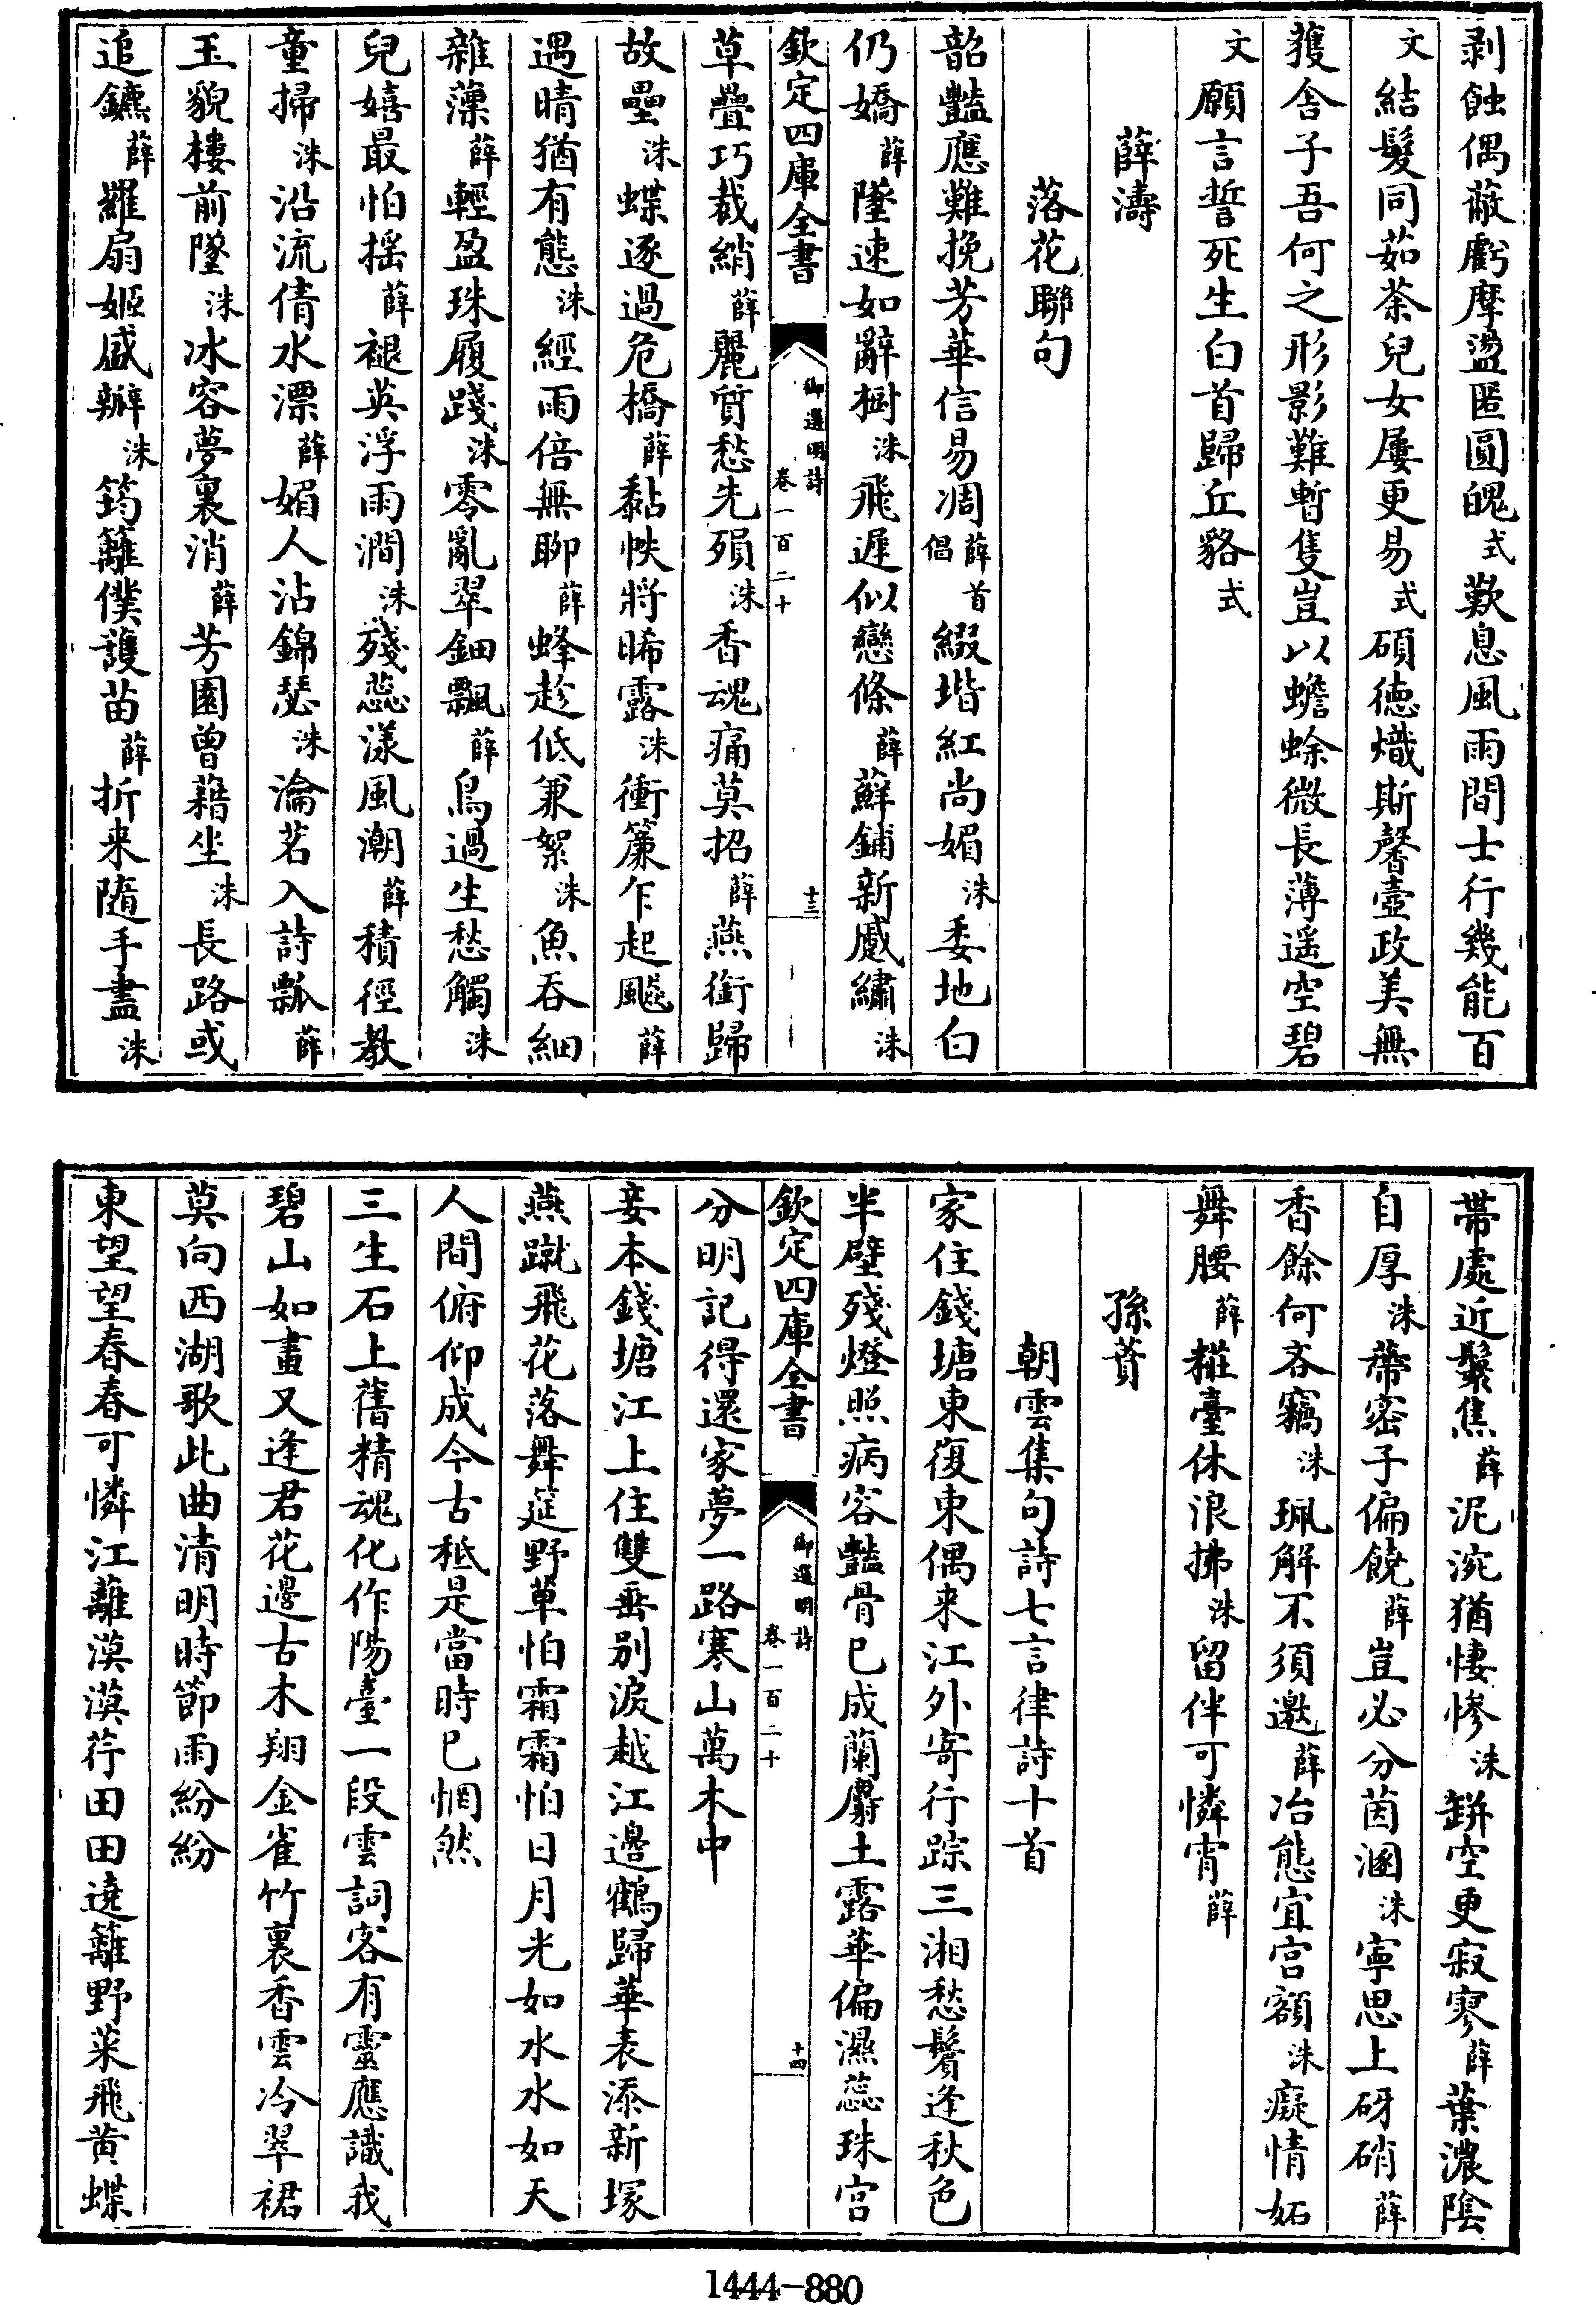 剥蝕偶蔽虧摩盪匿圓魄式歎息風雨間士行幾能百
文結髮同茹荼兒女屢更易式碩德熾斯馨壼政美無
獲舍子吾何之形影難暫隻豈以蟾蜍微長薄遥空碧
文願言誓死生白首歸丘貉式
薛濤
落花聯句
韶豔應難挽芳華信易凋薛首倡綴堦紅尚媚洙委地白
仍嬌薛墜速如辭樹洙飛遲似戀條薛蘚鋪新蹙繡洙
欽定四庫全書 御選明詩卷一百二十 十三
草疊巧裁綃薛麗質愁先殞洙香魂痛莫招薛燕銜歸
故壘洙蝶逐過危橋薛黏帙將晞露洙衝簾乍起飇薛
遇晴猶有態洙經雨倍無聊薛蜂趁低兼絮洙魚吞細
雜薸薛輕盈珠履踐洙零亂翠鈿飄薛鳥過生愁觸洙
兒嬉最怕揺薛褪英浮雨澗洙殘蕊漾風潮薛積徑教
童掃洙沿流倩水漂薛媚人沾錦瑟洙瀹茗入詩瓢薛
玉貌樓前墜洙冰容夢裏消薛芳園曾藉坐洙長路或
追鑣薛羅扇姬盛瓣洙筠籬僕護苗薛折来隨手盡洙
帶處近鬟焦薛泥涴猶悽慘洙缾空更寂寥薛葉濃陰
自厚洙蒂密子偏饒薛豈必分茵溷洙寧思上砑硝薛
香餘何吝竊洙珮解不須邀薛冶態宜宮額洙癡情妬
舞腰薛粧臺休浪拂洙留伴可憐宵薛
孫蕡
朝雲集句詩七言律詩十首
家住錢塘東復東偶来江外寄行踪三湘愁鬢逢秋色
半壁殘燈照病容豔骨已成蘭麝土露華偏濕蕊珠宮
欽定四庫全書 御選明詩卷一百二十 十四
分明記得還家夢一路寒山萬木中
妾本錢塘江上住雙垂别淚越江邊鶴歸華表添新塚
燕蹴飛花落舞筵野草怕霜霜怕日月光如水水如天
人間俯仰成今古秪是當時已惘然
三生石上舊精魂化作陽臺一段雲詞客有靈應識我
碧山如畫又逢君花邊古木翔金雀竹裏香雲冷翠裙
莫向西湖歌此曲清明時節雨紛紛
東望望春春可憐江蘺漠漠荇田田遶籬野菜飛黄蝶
1444-880